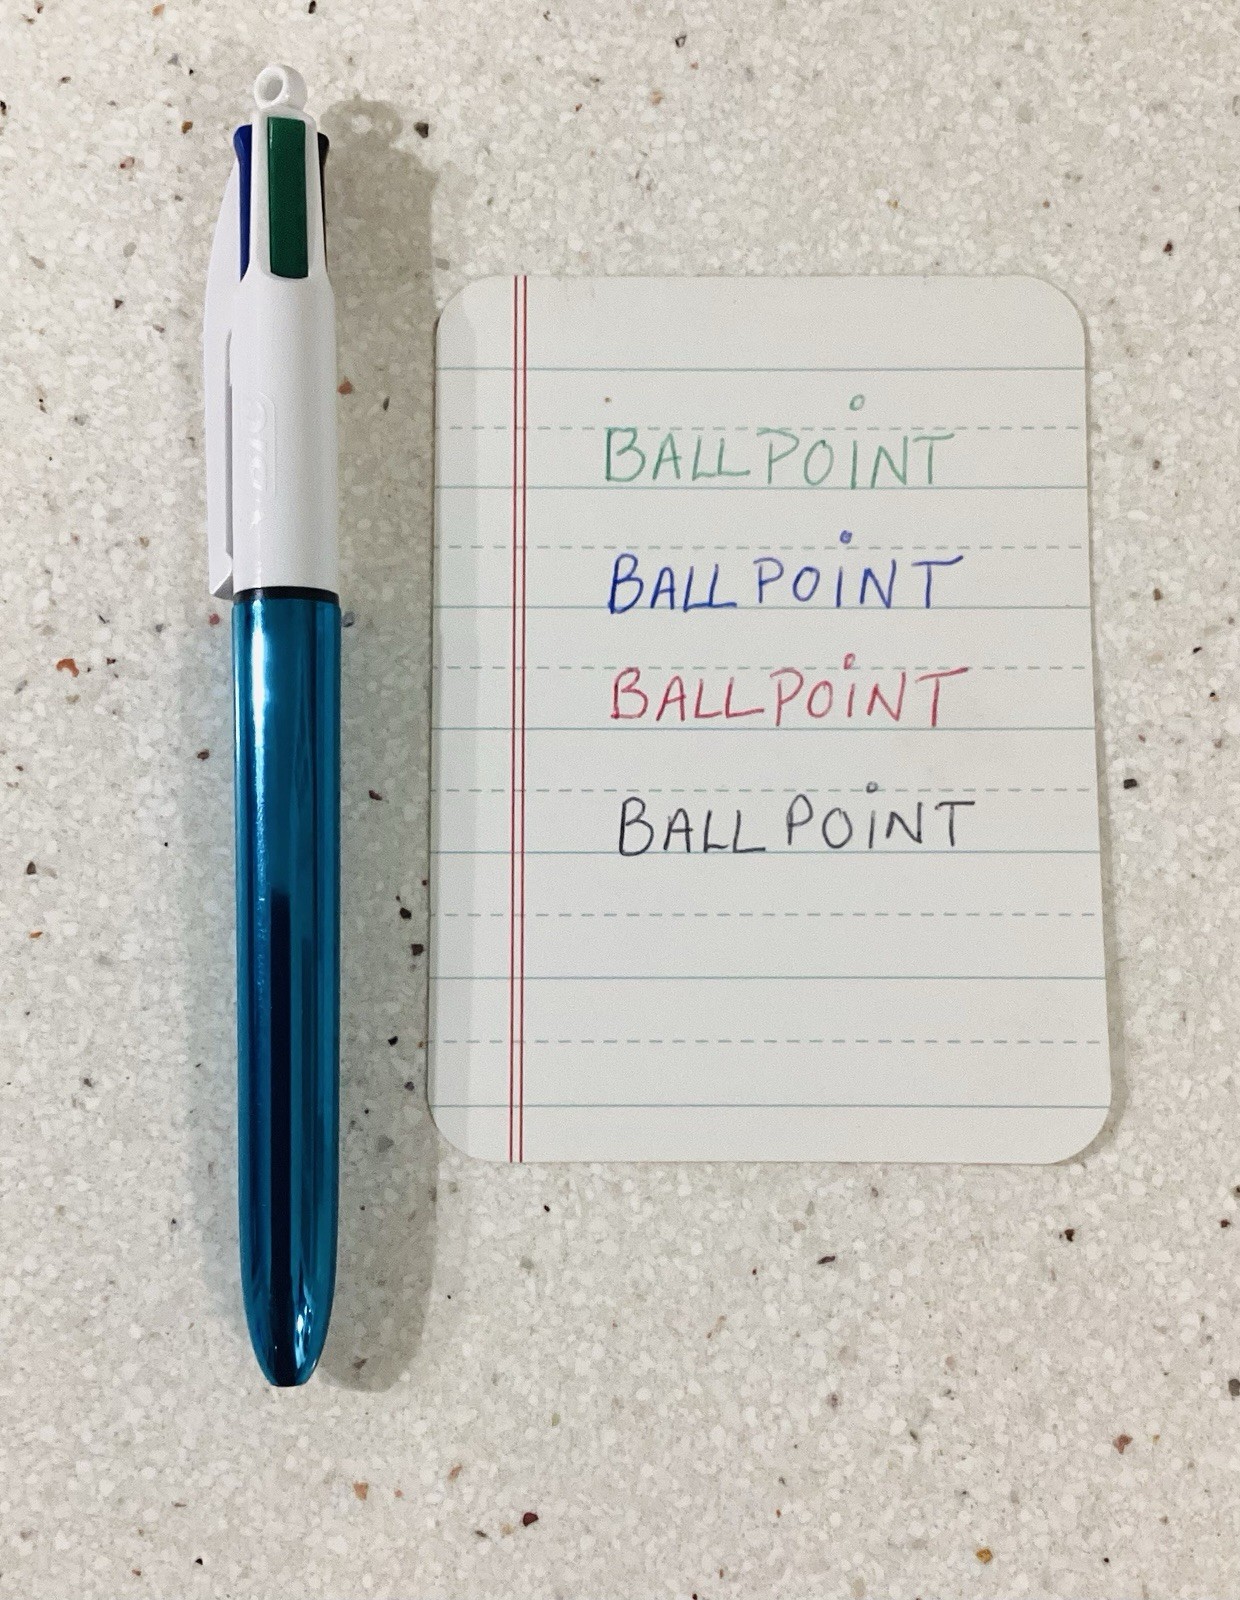 BALLPOiNT
BALLPOiNT
BALLPOiNT
BALLPOiNT